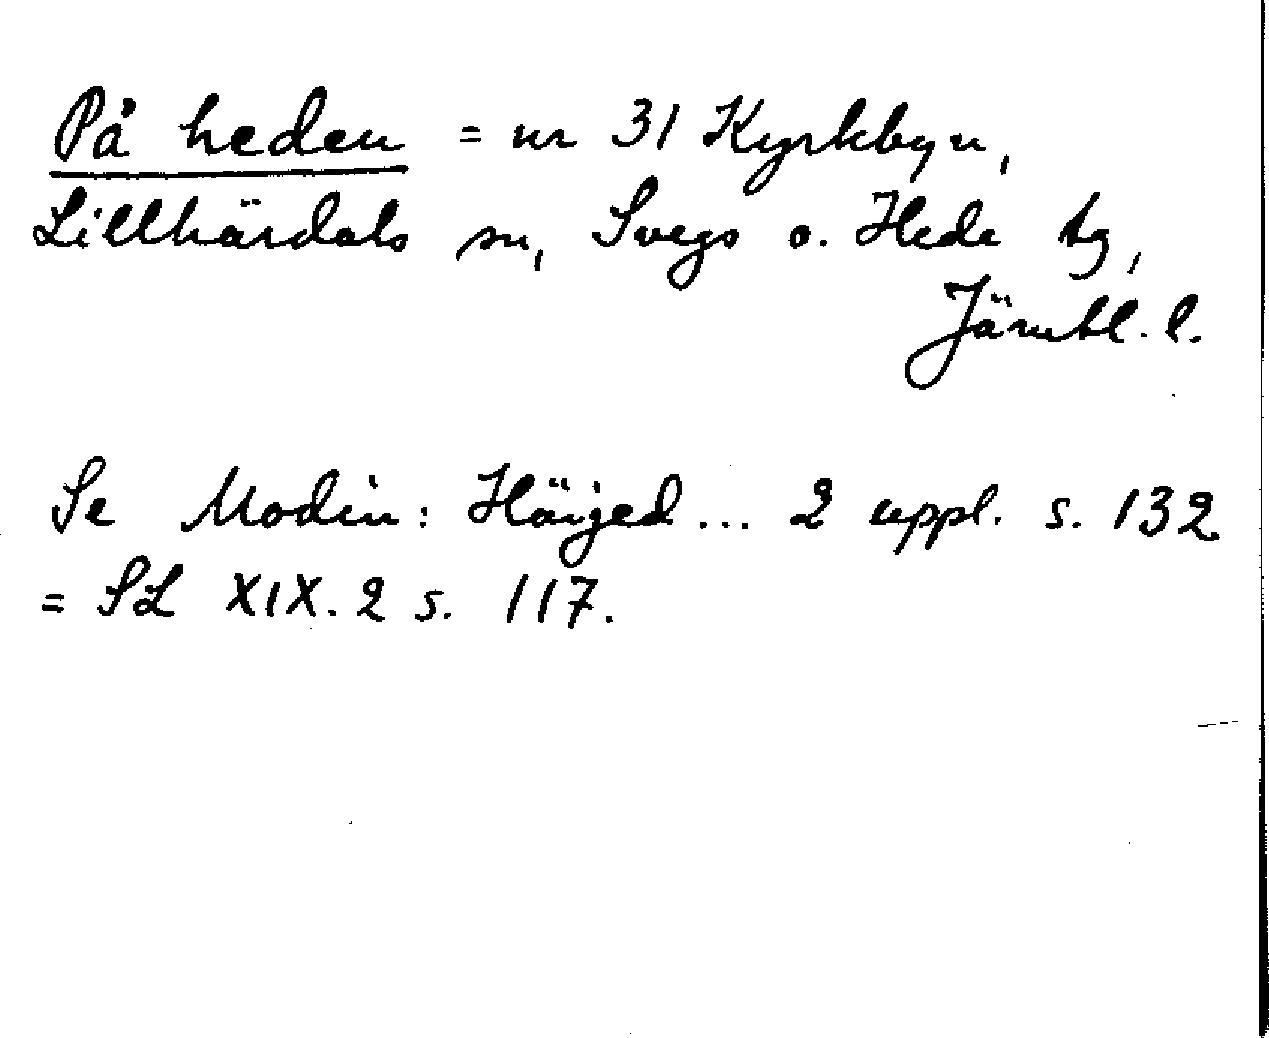 På heden = nr 31 Kyrkbyn,
Lillhärdals sn, Svegs o. Hede tg,
Jämtl. l.
Se Modin: Härjed... 2 uppl. s. 132
= SL XIX. 2 s. 117.